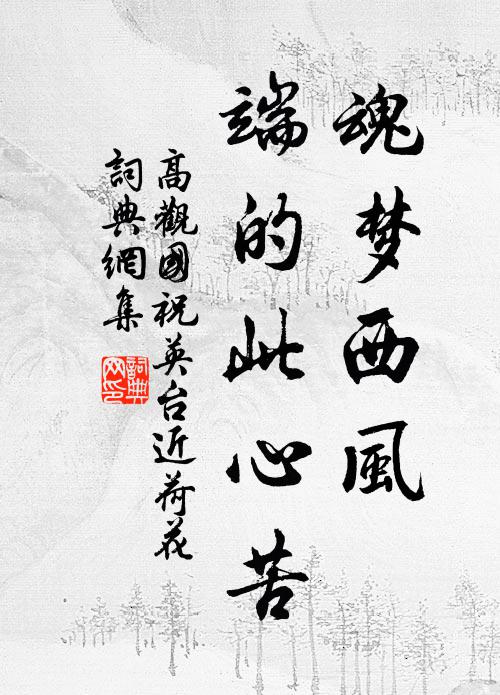 魂梦西風
端的此心苦
高觀國祝英台近荷花
詞典網集
詞典网印